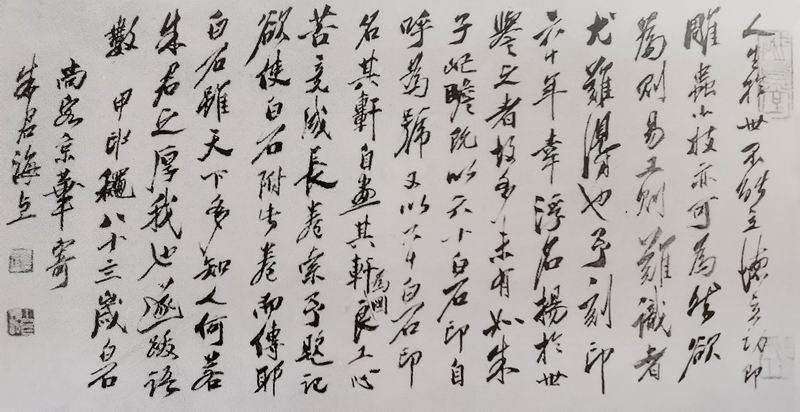 人生於世不能立德立功即
雕蟲小技亦可為然欲
為則易工則難識者
尤難得也予刻印
六十年幸浮名揚於世
譽之者故多未有如朱
子屺瞻既以六十白石印自
呼為號又以六十白石印
名其軒自畫其軒為圖良工心
苦竟成長卷索予題記
欲使白石附此卷而傳耶
白石雖天下多知人何若
朱君之厚我也遂跋語
數 甲申穐八十三歲白石
尚客京華寄
朱君海上